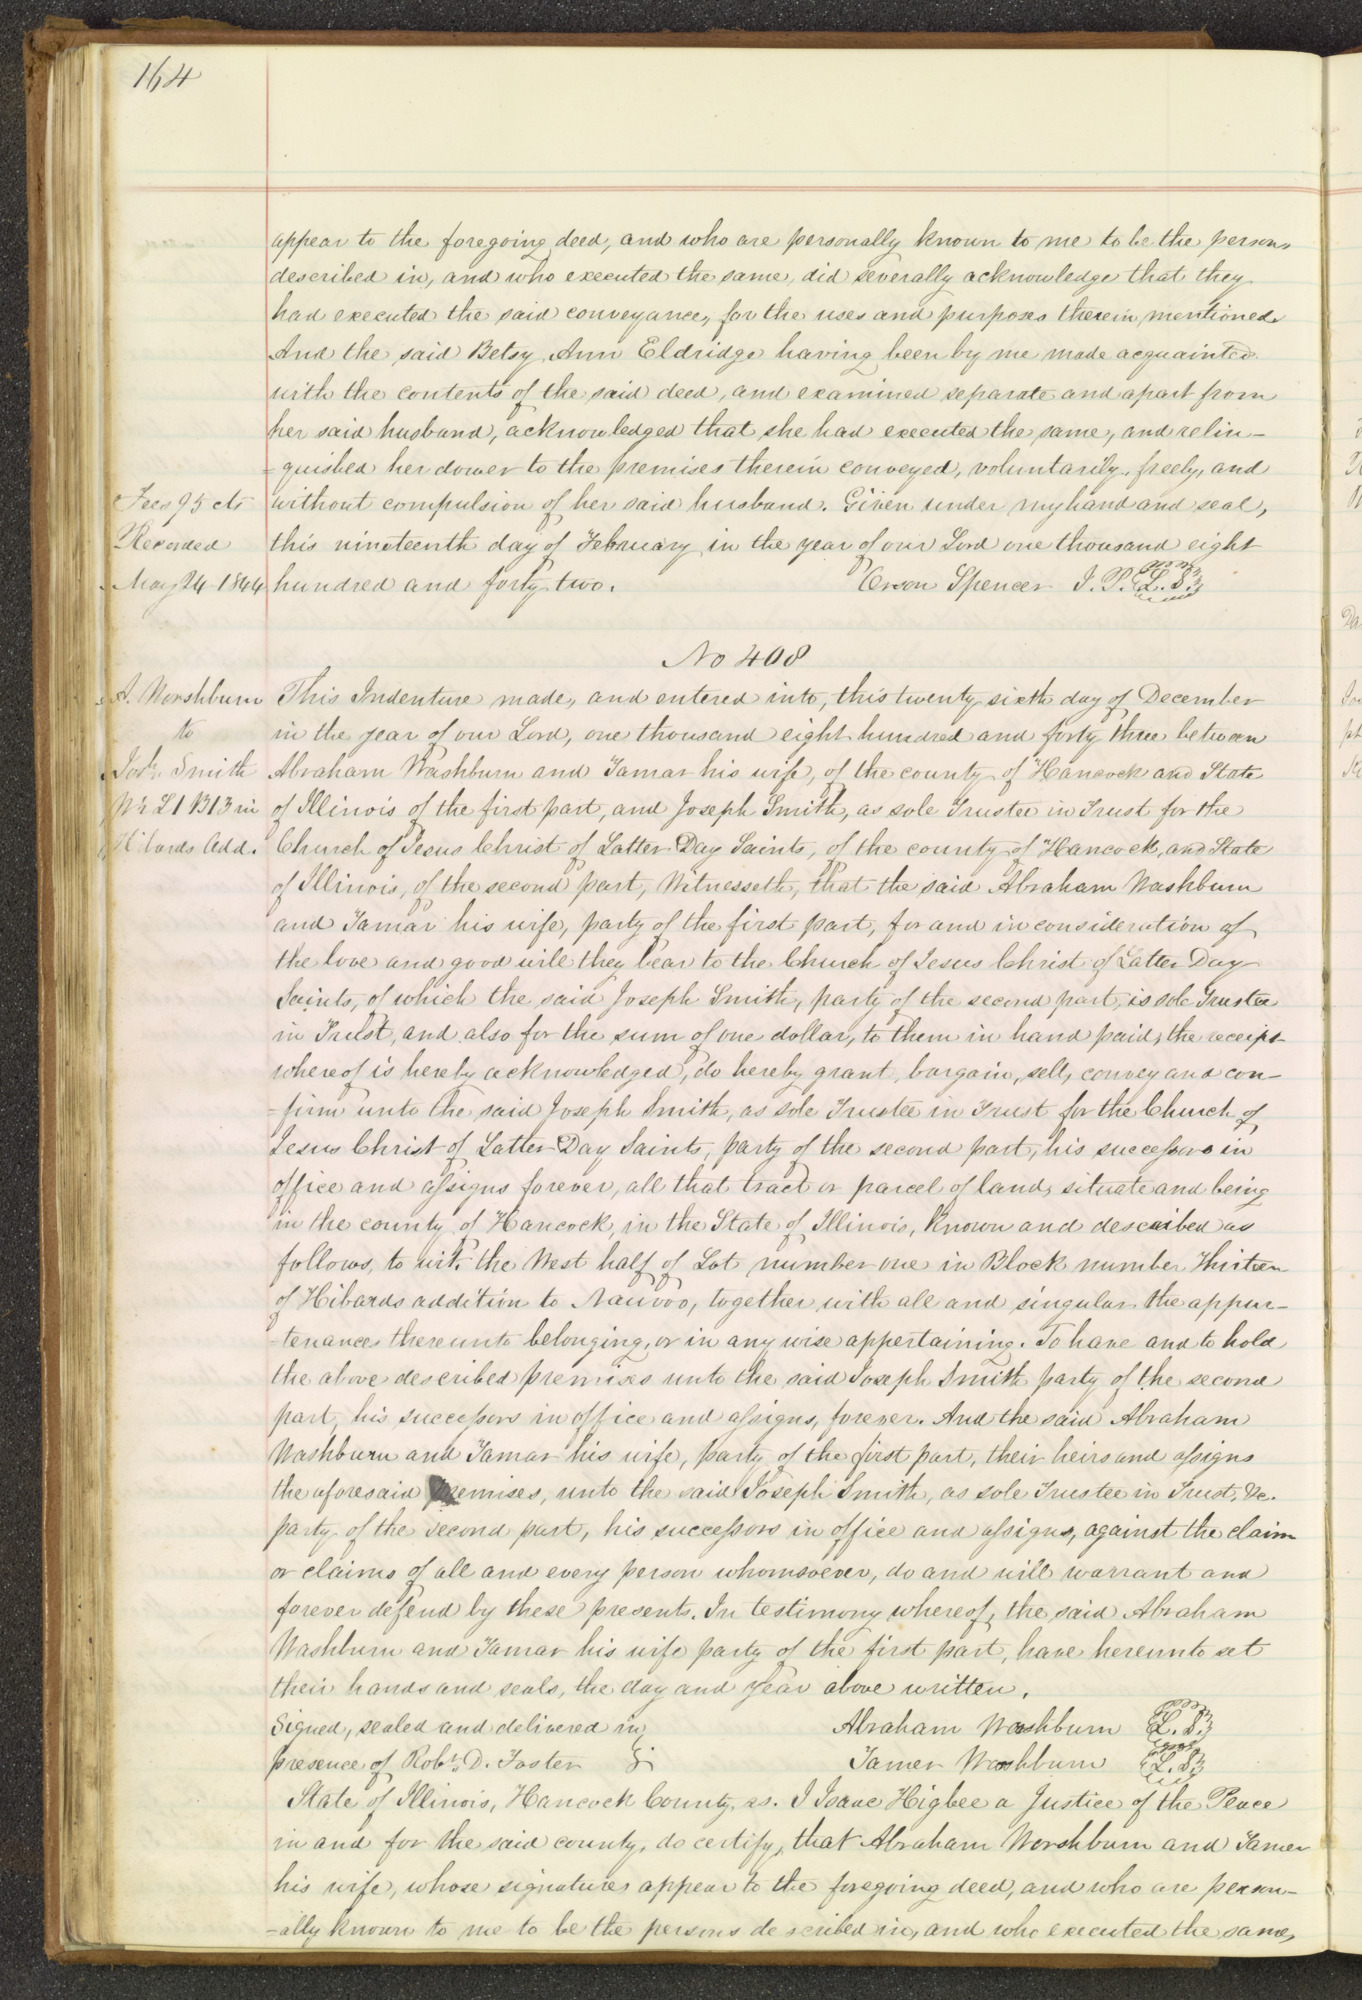 164
appear to the foregoing deed, and who are personally known to me to be the persons
described in, and who executed the same, did severally acknowledge that they
had executed the said conveyance, for the uses and purposes therein mentioned.
And the said Betsy Ann Eldridge having been by me made acquainted
with the contents of the said deed, and examined separate and apart from
her said husband, acknowledged that she had executed the same, and relin-
=quished her dower to the premises therein conveyed, voluntarily, freely, and
Fees 95 cts without compulsion of her said husband. Given under my hand and seal,
Recorded this nineteenth day of February in the year of our Lord one thousand eight
May 24 1844 hundred and forty two. Orson Spencer J. P. L. S.
No 408
A. Worshburn This Indenture made, and entered into, this twenty sixth day of December
to in the year of our Lord, one thousand eight hundred and forty three between
Josh. Smith Abraham Washburn and Tamar his wife, of the county of Hancock and State
W½ L1 B13 in of Illinois of the first part, and Joseph Smith, as sole Trustee in Trust for the
Hibards Add. Church of Jesus Christ of Latter Day Saints, of the county of Hancock, and State
of Illinois, of the second part, Witnesseth, that the said Abraham Washburn
and Tamar his wife, party of the first part, for and in consideration of
the love and good will they bear to the Church of Jesus Christ of Latter Day
Saints, of which the said Joseph Smith, party of the second part, is sole Trustee
in Trust, and also for the sum of one dollar, to them in hand paid, the receipt
whereof is hereby acknowledged, do hereby grant, bargain, sell, convey and con-
=firm unto the said Joseph Smith, as sole Trustee in Trust for the Church of
Jesus Christ of Latter Day Saints, party of the second part, his successors in
office and assigns forever, all that tract or parcel of land, situate and being
in the county of Hancock, in the State of Illinois, known and described as
follows, to wit. the West half of Lot number one in Block number Thirteen
of Hibards addition to Nauvoo, together with all and singular the appur-
-tenances thereunto belonging, or in any wise appertaining. To have and to hold
the above described premises unto the said Joseph Smith party of the second
part, his successors in office and assigns, forever. And the said Abraham
Washburn and Tamar his wife, party of the first part, their heirs and assigns
the aforesaid premises, unto the said Joseph Smith, as sole Trustee in Trust, &c.
party of the second part, his successors in office and assigns, against the claim
or claims of all and every person whomsoever, do and will warrant and
forever defend by these presents. In testimony whereof, the said Abraham
Washburn and Tamar his wife party of the first part, have hereunto set
their hands and seals, the day and year above written.
Signed, sealed and delivered in Abraham Washburn L. S.
presence of Robt. D. Foster Tamer Washburn L. S.
State of Illinois, Hancock County, ss. I Isaac Higbee a Justice of the Peace
in and for the said county, do certify, that Abraham Worshburn and Tamer
his wife, whose signatures appear to the foregoing deed, and who are person-
=ally known to me to be the persons described in, and who executed the same,